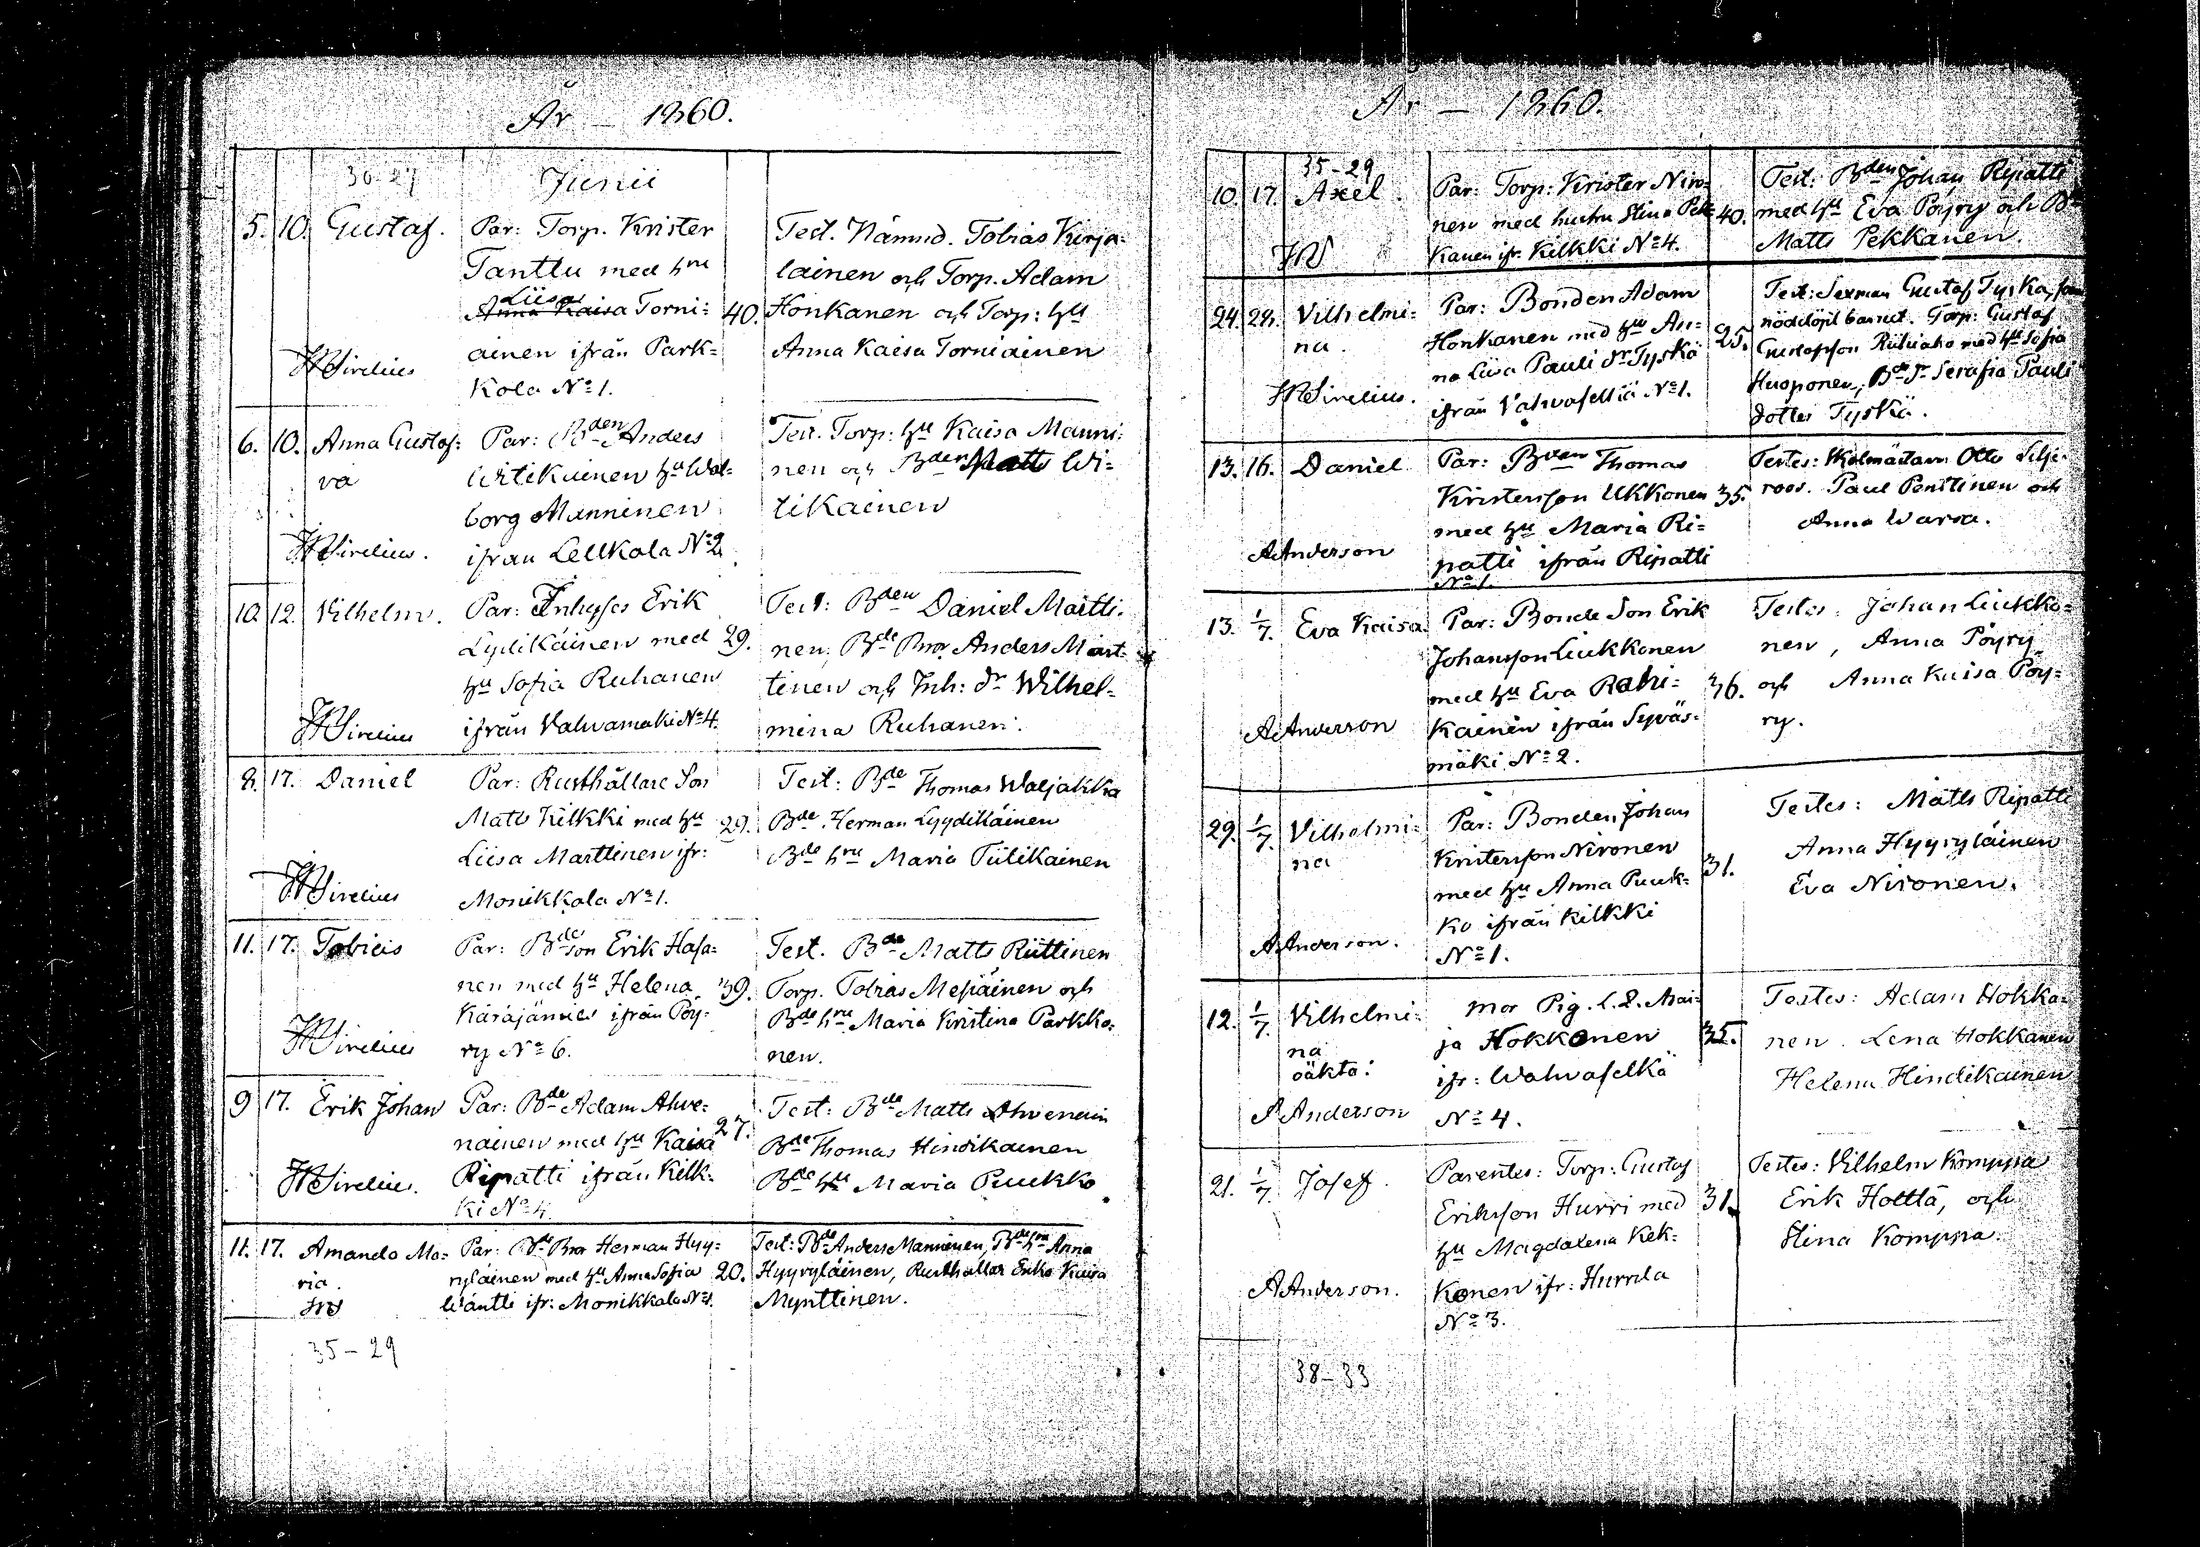 År — 1860.
36-27
Junii
5. 10. Gustaf. Par: Torp. Krister
Tanttu med hru
Liisa
Anna Kaisa Torni= 40.
ainen ifrån Park=
kola No 1.
HWSirelius
Test. Nämnd. Tobias Kirja=
lainen och Torp. Adam
Honkanen och Torp: hu
Anna Kaisa Torniainen
6. 10. Anna Gustaf= Par: Bden Anders
va
Witikainen hu Wal=
borg Manninen
ifrån Lellkola No 2
HWSirelius.
Test. Torp: hu Kaisa Manni=
nen och Bden Matts Wi=
tikainen
10. 12. Vilhelm. Par: Inhyses Erik
Lydikäinen med 29.
hu Sofia Ruhanen
ifrån Vahvamäki No 4.
HWSirelius
Test: Bden Daniel Martti=
nen, Bde Bror Anders Mart=
tinen och Inh: dr Wilhel=
mina Ruhanen.
8. 17. Daniel Par: Rusthållare Son
Matts Kilkki med hu 29.
Liisa Marttinen ifr:
Monikkala No 1.
HWSirelius
Test: Bde Thomas Waljakka
Bde Herman Lyydikäinen
Bde hru Maria Tiilikainen
11. 17. Tobias Par: Bde son Erik Hasa=
nen med hu Helena 39.
Käräjännes ifrån Pöy=
ry No 6.
HWSirelius
Test. Bde Matts Riittinen
Torp. Tobias Mesiäinen och
Bde hru Maria Kristina Parkko=
nen.
9 17. Erik Johan Par: Bde Adam Ahve=
nainen med hu Kaisa 27.
Ripatti ifrån Kilk=
ki No 4.
HWSirelius.
Test: Bde Matts Ahvenain
Bde Thomas Hindikainen
Bde hu Maria Puukko.
11. 17. Amanda Ma= Par: Bde Bror Herman Hyy=
ria.
ryläinen med hu Anna Sofia 20.
Wäntti ifr: Monikkala No 1.
HWS
Test: Bde Anders Manninen, Bde hru Anna
Hyyryläinen, Rusthållar Enka Kaisa
Mynttinen.
35-29
År — 1860.
35-29
10. 17. Axel. Par: Torp: Krister Niro=
nen med hustru Stina Pek= 40.
kanen ifr. Kilkki No 4.
HWS
Test: Bden Johan Ripatti
med hu Eva Pöyry och Bde
Matts Pekkanen.
24. 24. Vilhelmi=
na.
Par: Bonden Adam
Honkanen med hu An= 25.
na Liisa Pauli dr Tyskä
ifrån Vahvaselkä No 1.
HWSirelius.
Test: Sexman Gustaf Tyskä, som
nöddöpt barnet. Torp: Gustaf
Gustafsson Riihiaho med hu Sofia
Husponen, Bde dr Serafia Pauli
dotter Tyskä.
13. 16. Daniel Par: Bden Thomas
Kristersson Ukkonen 35.
med hu Maria Ri=
patti ifrån Ripatti
No 1.
AAnderson
Testes: Skolmästaren Otto Silje=
roos. Paul Penttinen och
Anna Warsa.
13. 1/7. Eva Kaisa. Par: Bonde Son Erik
Johansson Liukkonen
med hu Eva Rahi= 36.
kainen ifrån Syväs=
mäki No 2.
AAnderson
Testes: Johan Liukko=
nen, Anna Pöyry
och Anna Kaisa Pöy=
ry.
29. 1/7. Vilhelmi=
na
Par: Bonden Johan
Kristersson Nironen
med hu Anna Puuk= 31.
ko ifrån Kilkki
No 1.
AAnderson.
Testes: Matts Ripatti
Anna Hyyryläinen
Eva Nironen.
12. 1/7. Vilhelmi=
na
oäkta:
Mor Pig. l. d. Mai=
ja Hokkanen 35.
ifr: Wahvaselkä
No 4.
AAnderson
Testes: Adam Hokka=
nen. Lena Hokkanen
Helena Hindikainen
21. 1/7. Josef. Parentes: Torp: Gustaf
Eriksson Hurri med 31.
hu Magdalena Kek=
konen ifr: Hurrila
No 3.
AAnderson.
Testes: Vilhelm Komppa
Erik Holttä, och
Stina Komppa.
38-33